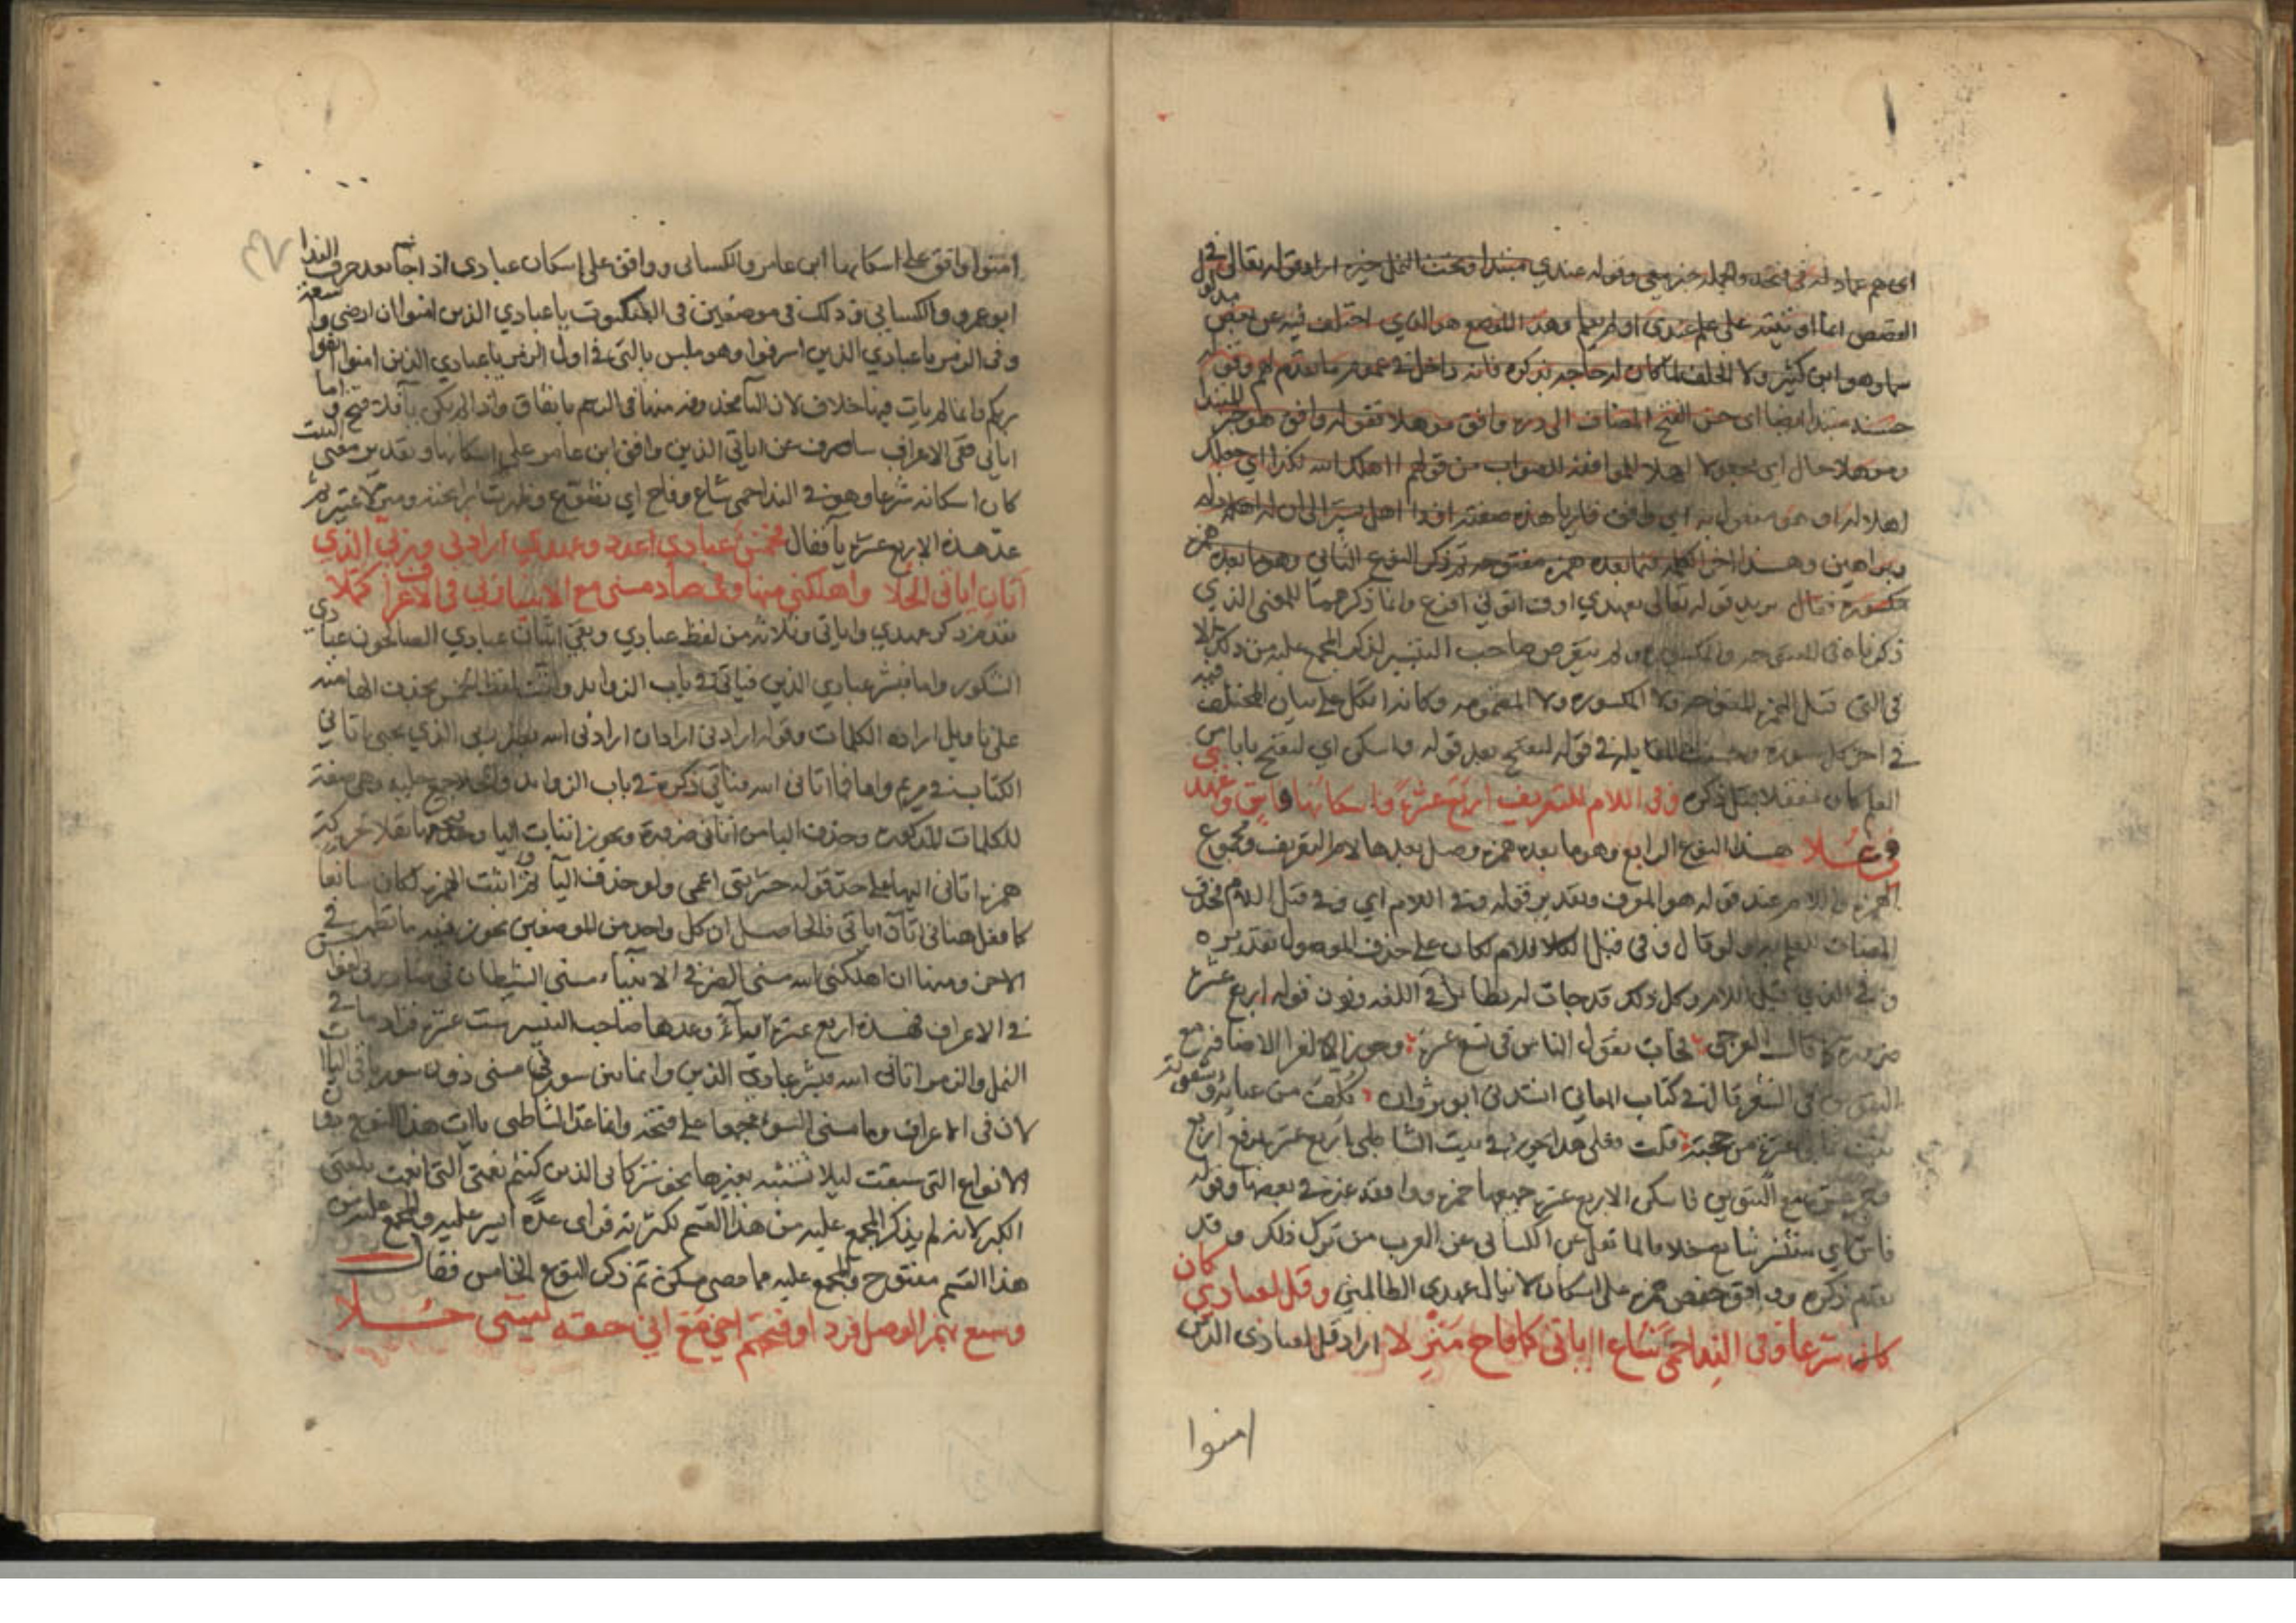 اى هم عماد له فى فتحه والجملة خبر معى وقوله عندي مبتدا وتحت النمل خبره اراد قوله تعالى في
القصص انما اوتيته على علم عندى اولم يعلم وهذا الموضع هو الذي اختلف فيه عن بعض مدلول
سما وهو ابن كثير ولا الخلف لما كان له حاجة بذكره فانه داخل في عموم ما تقدم لهم وقوله
حسنه مبتدا ايضا اى حسن الفتح المضاف الى دره وافق موهلا فقوله وافق هو خبر المبتدا
وموهلا حال اي مجعولا اهلا للموافقة للصواب من قولهم اهلك الله لكذا اي جعلك
اهلا له او هو مفعول به اي وافق قاريا هذه صفته
وبراهين وهذا اخر الكلام فيما بعده همزة مفتوحة ثم ذكر النوع الثاني وهو ما بعده همزة
مكسورة فقال يريد قوله تعالى بعهدي اوف اتوني افرغ وانما ذكرهما للمعنى الذي
ذكرناه في المفتوحة والمكسورة ولم يتعرض صاحب التيسير لذكر المجمع عليه من ذلك لا
فى التي قبل الهمزة المفتوحة ولا المكسورة ولا المضمومة وكانه اتكل على بيان المختلف فيه
في اخر كل سورة وحسنت المقابلة في قوله لتفتح بعد قوله واسكن اي لتفتح بابا من
العلم كان مقفلا قبل ذكره وفى اللام للتعريف اربع عشرة فاسكانها فاش وعهدي
فى علا هذا النوع الرابع وهو ما بعده همزة وصل بعدها لام التعريف ومجموع
الهمزة واللام عند قوم هو المعرف وتقدير قوله وفى اللام اي وفى قبل اللام فحذف
المضاف للعلم به ولو قال وفى قبل اللام لكان على حذف الموصول تقديره
وفي الذي قبل اللام وكل ذلك قد جات له نظائر في اللغة ونون قوله اربع عشرة
ضرورة كما قال العرجي
فى الشعر قال في كتاب المعاني انشدنى ابو ثروان كلف من عنايه وشقوته
بنت ثماني عشرة من حجته قلت فعلى هذا يجوز في بيت الشاطبي اربع عشرة برفع اربع
وجر عشرة مع التنوين فاسكن الاربع عشرة جميعها حمزة ووافقه غيره في بعضها وقوله
فاش اي منتشر شايع خلافا لما نقل عن الكسائى عن العرب من ترك ذلك وقد
تقدم ذكره ووافق حفص حمزة على اسكان لا ينال عهدى الظالمين وقل لعبادي كان
كان شرعا وفى الندا حمى شاع اياتى كما فاح منزلا اراد قل لعبادى الذين
امنوا
امنوا وافق على اسكانها ابن عامر والكسائى ووافق على اسكان عبادى اذا جا بعد حرف الندا
ابو عمرو والكسائي وذلك في موضعين فى العنكبوت يا عبادي الذين امنوا ان ارضى واسعة
وفى الزمر يا عبادي الذين اسرفوا وهو ملبس بالتى في اول الزمر يا عبادي الذين امنوا اتقوا
ربكم وانما لم يات فيها خلاف لان اليا محذوفة منها فى الرسم باتفاق
اياتى ففى الاعراف ساصرف عن اياتي الذين وافق ابن عامر على اسكانها وتقدير معنى البيت
كان اسكانه شرعا وهو في الندا حمى شاع وفاح اي تضوع وظهرت رائحته ومنزلا تمييز ثم
عد هذه الاربع عشرة يا فقال فخمس عبادي اعدد وعهدي ارادنى وربي الذي
اتان اياتى الحلا واهلكني منها وفى صاد مسنى مع الانبيا ربي فى الاعراف كملا
تقدم ذكر عهدي واياتي وثلاثة من لفظ عبادي وبقى اثنان عبادي الصالحون عبادي
الشكور واما فبشر عبادي الذين فياتى في باب الزوايد وانث لفظ الخمس بحذف الها منه
على تاويل ارادة الكلمات وقوله ارادنى اراد ان ارادنى الله بضر ربي الذي يحيى اتاني
الكتاب في مريم واما فما اتانى الله فياتي ذكره في باب الزوايد والحلا جمع حلية وهي صفة
للكلمات المذكورة وحذف اليا من اتانى ضرورة ويجوز اثبات اليا وفتحها بنقل حركة
همزة اياتى اليها على حد قوله حشرتنى اعمى ولو حذف اليا ثم اثبت الهمزة لكان سائغا
كما فعل هنا فى اتان اياتي فالحاصل ان كل واحد من الموضعين يجوز فيه ما نظم في
الاخر ومنها ان اهلكنى الله مسنى الضر في الانبيا مسنى الشيطان فى صاد ربي الفواحش
في الاعراف فهذه اربع عشرة ياء وعدها صاحب التيسير ست عشرة فزاد ما في
النمل والزمر اتانى الله فبشر عبادي الذين وانما بين سورتى مسنى دون سور باقى اليات
لان فى الاعراف وما مسنى السوء مجمعا على فتحه وانما عد الشاطبى يات هذا النوع دون
الانواع التى سبقت ليلا تشتبه بغيرها نحو شركائى الذين كنتم نعمتي التي انعمت بلغني
الكبر لانه لم يذكر المجمع عليه من هذا القسم لكثرته فراى عده ايسر عليه والمجمع عليه من
هذا القسم مفتوح والمجمع عليه مما مضى مسكن ثم ذكر النوع الخامس فقال
وسبع بهمز الوصل فردا وفتحهم اخى مع انى حقه ليتنى حلا